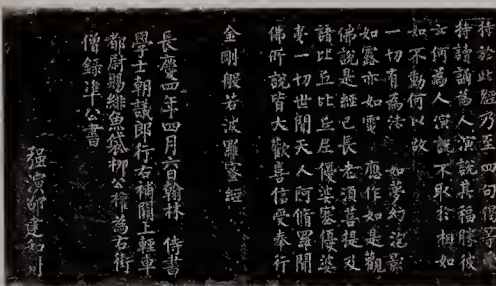 持於此經乃至四句偈等受
持讀誦為人演說其福勝彼
云何為人演說不取於相如
如不動何以故
一切有為法 如夢幻泡影
如露亦如電 應作如是觀
佛說是經已長老須菩提及
諸比丘比丘尼優婆塞優婆
夷一切世間天人阿脩羅聞
佛所說皆大歡喜信受奉行
金剛般若波羅蜜經
長慶四年四月六日翰林 侍書
學士朝議郎行右補闕上輕車
都尉賜緋魚袋柳公權為右街
僧錄準公書
强演邵建和刻